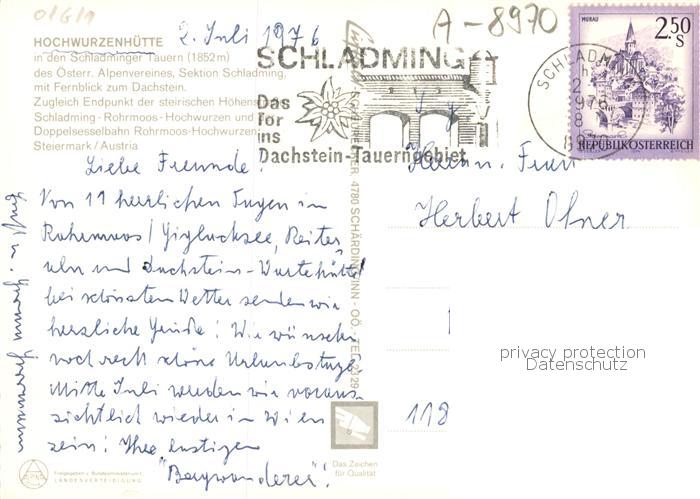 01/6/1
A-8970
2. Juli 1976
HOCHWURZENHÜTTE
in den Schladminger Tauern (1852 m)
des Österr. Alpenvereines, Sektion Schladming,
mit Fernblick zum Dachstein.
Zugleich Endpunkt der steirischen Höhens
Schladming - Rohrmoos - Hochwurzen und
Doppelsesselbahn Rohrmoos-Hochwurzen
Steiermark / Austria
SCHLADMING
Das
Tor
ins
Dachstein-Tauerngebiet
MURAU
2.50
S
REPUBLIK ÖSTERREICH
SCHLADM
4780 SCHÄRDING/INN - OÖ. - TEL.
Liebe Freunde!
Von 11 herrlichen Tagen in
Rohrmoos / Giglachsee, Reiter
alm und Dachstein-Wartehütte
bei schönstem Wetter senden wir
herzliche Grüße! Wir wünschen
noch recht schöne Urlaubstage
Mitte Juli werden wir voraus-
sichtlich wieder in Wien
sein! Ihre lustigen
"Bergwanderer"!
Herrn. Frau
Herbert Ofner
118
privacy protection
Datenschutz
Das Zeichen
für Qualität
Freigegeben v. Bundesministerium f.
LANDESVERTEIDIGUNG